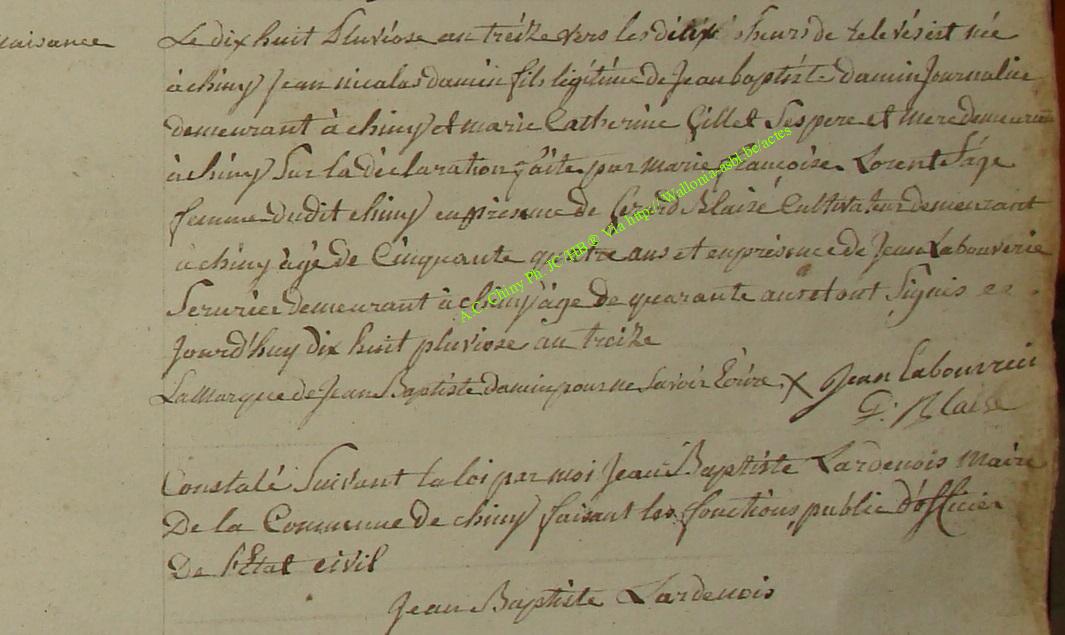 naisance
Le dix huit Pluviose an treize vers les heurs de relevés est née
à chiny Jean nicolas damin fils légitime de Jean baptiste damin Journalier
demeurant à chiny et marie Catherine Gillet Ses pere et mere demeurant
à chiny Sur la déclaration faite par marie francoise Lorent Sage
femme dudit chiny en présence de Gerard Blaise Cultivateur demeurant
à chiny âgé de Cinquante quatre ans et en présence de Jean Labouverie
Serurier demeurant à chiny âgé de quarante ans et ont Signés ce
Jourd'huy dix huit pluviose an treize
La Marque de Jean Baptiste damin pour ne Savoir Ecrire X Jean Labouverie
G: Blaise
Constaté Suivant la loi par moi Jean Baptiste Lardenois Maire
De la Commune de chiny faisant les fonctions public d'officier
De l'Etat civil
Jean Baptiste Lardenois
A.C. Chiny Ph. JC HB ® Via http://Wallonia-asbl.be/actes